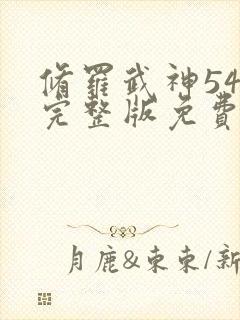 脩羅武神54
完整版免費
月鹿&東東/新